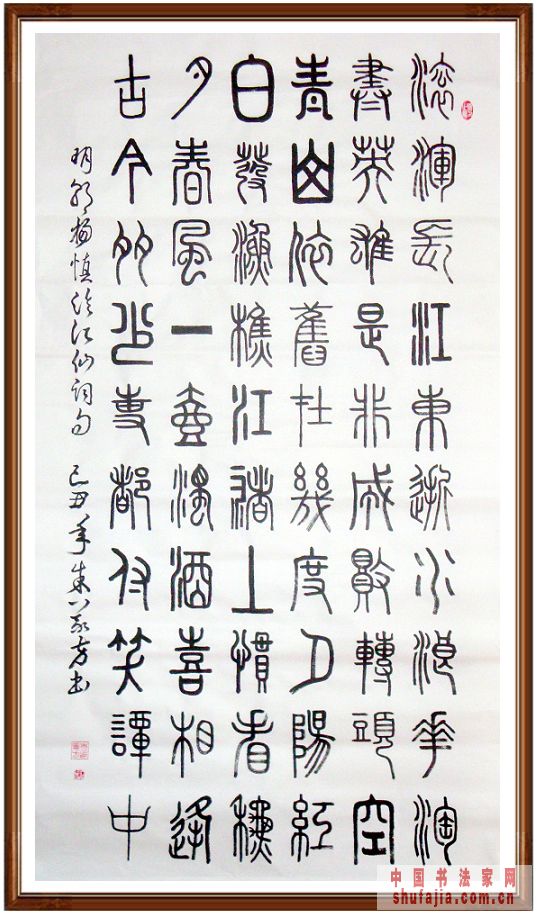 滾渾長江東逝水浪花淘
盡英雄是非成敗轉頭空
青山依舊在幾度夕陽紅
白發漁樵江渚上慣看秋
月春風一壺濁酒喜相逢
古今多少事都付笑譚中
明朝楊慎臨江仙詞句 己丑年朱方书
中国书法家网
shufajia.com.cn